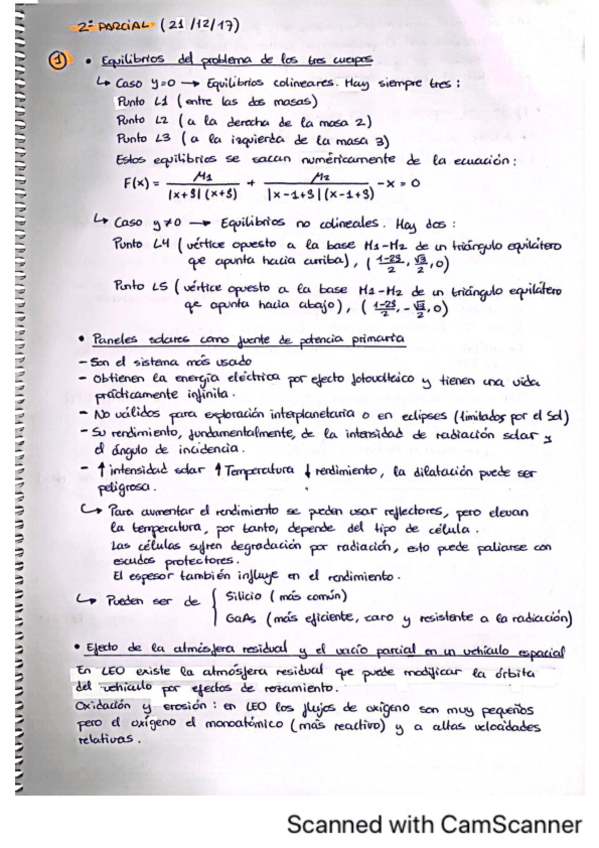 2º PARCIAL (21/12/17)
1 • Equilibrios del problema de los tres cuerpos
↳ Caso y=0 → Equilibrios colineares. Hay siempre tres:
Punto L1 (entre las dos masas)
Punto L2 (a la derecha de la masa 2)
Punto L3 (a la izquierda de la masa 3)
Estos equilibrios se sacan numéricamente de la ecuación:
F(x) = M1 / |x+S|(x+S) + M2 / |x-1+S|(x-1+S) - x = 0
↳ Caso y≠0 → Equilibrios no colineales. Hay dos:
Punto L4 (vértice opuesto a la base M1-M2 de un triángulo equilátero
que apunta hacia arriba), (1-2S/2, √3/2, 0)
Punto L5 (vértice opuesto a la base M1-M2 de un triángulo equilátero
qe apunta hacia abajo), (1-2S/2, -√3/2, 0)
• Paneles solares como fuente de potencia primaria
- Son el sistema más usado
- Obtienen la energía eléctrica por efecto fotovoltaico y tienen una vida
prácticamente infinita.
- No válidos para exploración interplanetaria o en eclipses (limitados por el Sol)
- Su rendimiento, fundamentalmente, de la intensidad de radiación solar y
el ángulo de incidencia.
- ↑ intensidad solar ↑ Temperatura ↓ rendimiento, la dilatación puede ser
peligrosa.
↳ Para aumentar el rendimiento se pueden usar reflectores, pero elevan
la temperatura, por tanto, depende del tipo de célula.
Las células sufren degradación por radiación, esto puede paliarse con
escudos protectores.
El espesor también influye en el rendimiento.
↳ Pueden ser de { Silicio (más común)
GaAs (más eficiente, caro y resistente a la radiación)
• Efecto de la atmósfera residual y el vacío parcial en un vehículo espacial
En LEO existe la atmósfera residual que puede modificar la órbita
del vehículo por efectos de rozamiento.
Oxidación y erosión: en LEO los flujos de oxígeno son muy pequeños
pero el oxígeno el monoatómico (más reactivo) y a altas velocidades
relativas.
Scanned with CamScanner